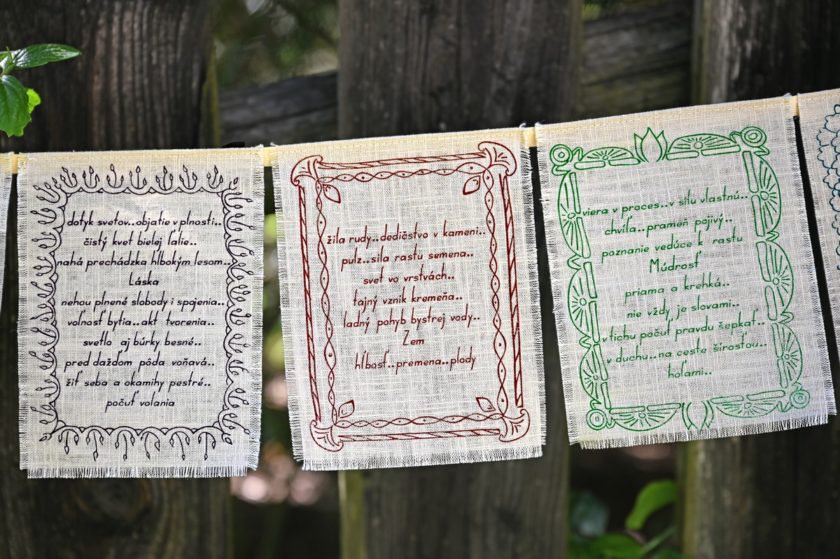 dotyk svetov..objatie v plnosti..
čistý kvet bielej ľalie..
nahá prechádzka hlbokým lesom..
Láska
nehou plnené slobody i spojenia..
voľnosť bytia..akt tvorenia..
svetlo aj búrky besné..
pred dažďom pôda voňavá..
žiť seba a okamihy pestré..
počuť volania
žila rudy..dedičstvo v kameni..
pulz..sila rastu semena..
svet vo vrstvách..
tajný vznik kremeňa..
ladný pohyb bystrej vody..
Zem
hĺbosť..premena..plody
viera v proces..v silu vlastnú..
chvíľa..prameň pojivý..
poznanie vedúce k rastu
Múdrosť
priama a krehká..
nie vždy je slovami..
v tichu počuť pravdu šepkať..
v duchu..na ceste šírostou..
hoľami..